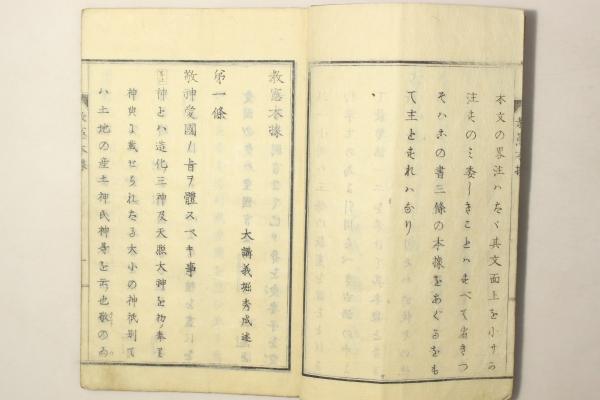 本文の畧注ハたゞ其文面上を小サく
注せるのミ委しきことハすべて省きつ
そハこの書三條の本據をあぐるをも
て主とすれハなり
教憲本據
大講義堀秀成述
第一條
敬神愛國ノ旨ヲ體スベキ事
神とハ造化三神及天照大神を初メ奉り
神典に載せられたる大小の神祇別て
ハ土地の産土神氏神等を云也敬のゐ
教憲本據